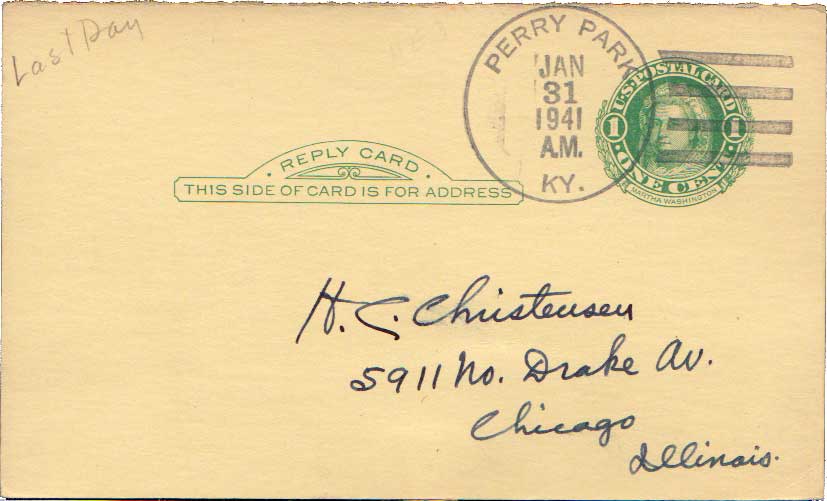 Last Day
PERRY PARK
JAN
31
1941
A.M.
KY.
U.S. POSTAL CARD
1 1
ONE CENT
MARTHA WASHINGTON
REPLY CARD
THIS SIDE OF CARD IS FOR ADDRESS
H. C. Christensen
5911 No. Drake Av.
Chicago
Illinois.